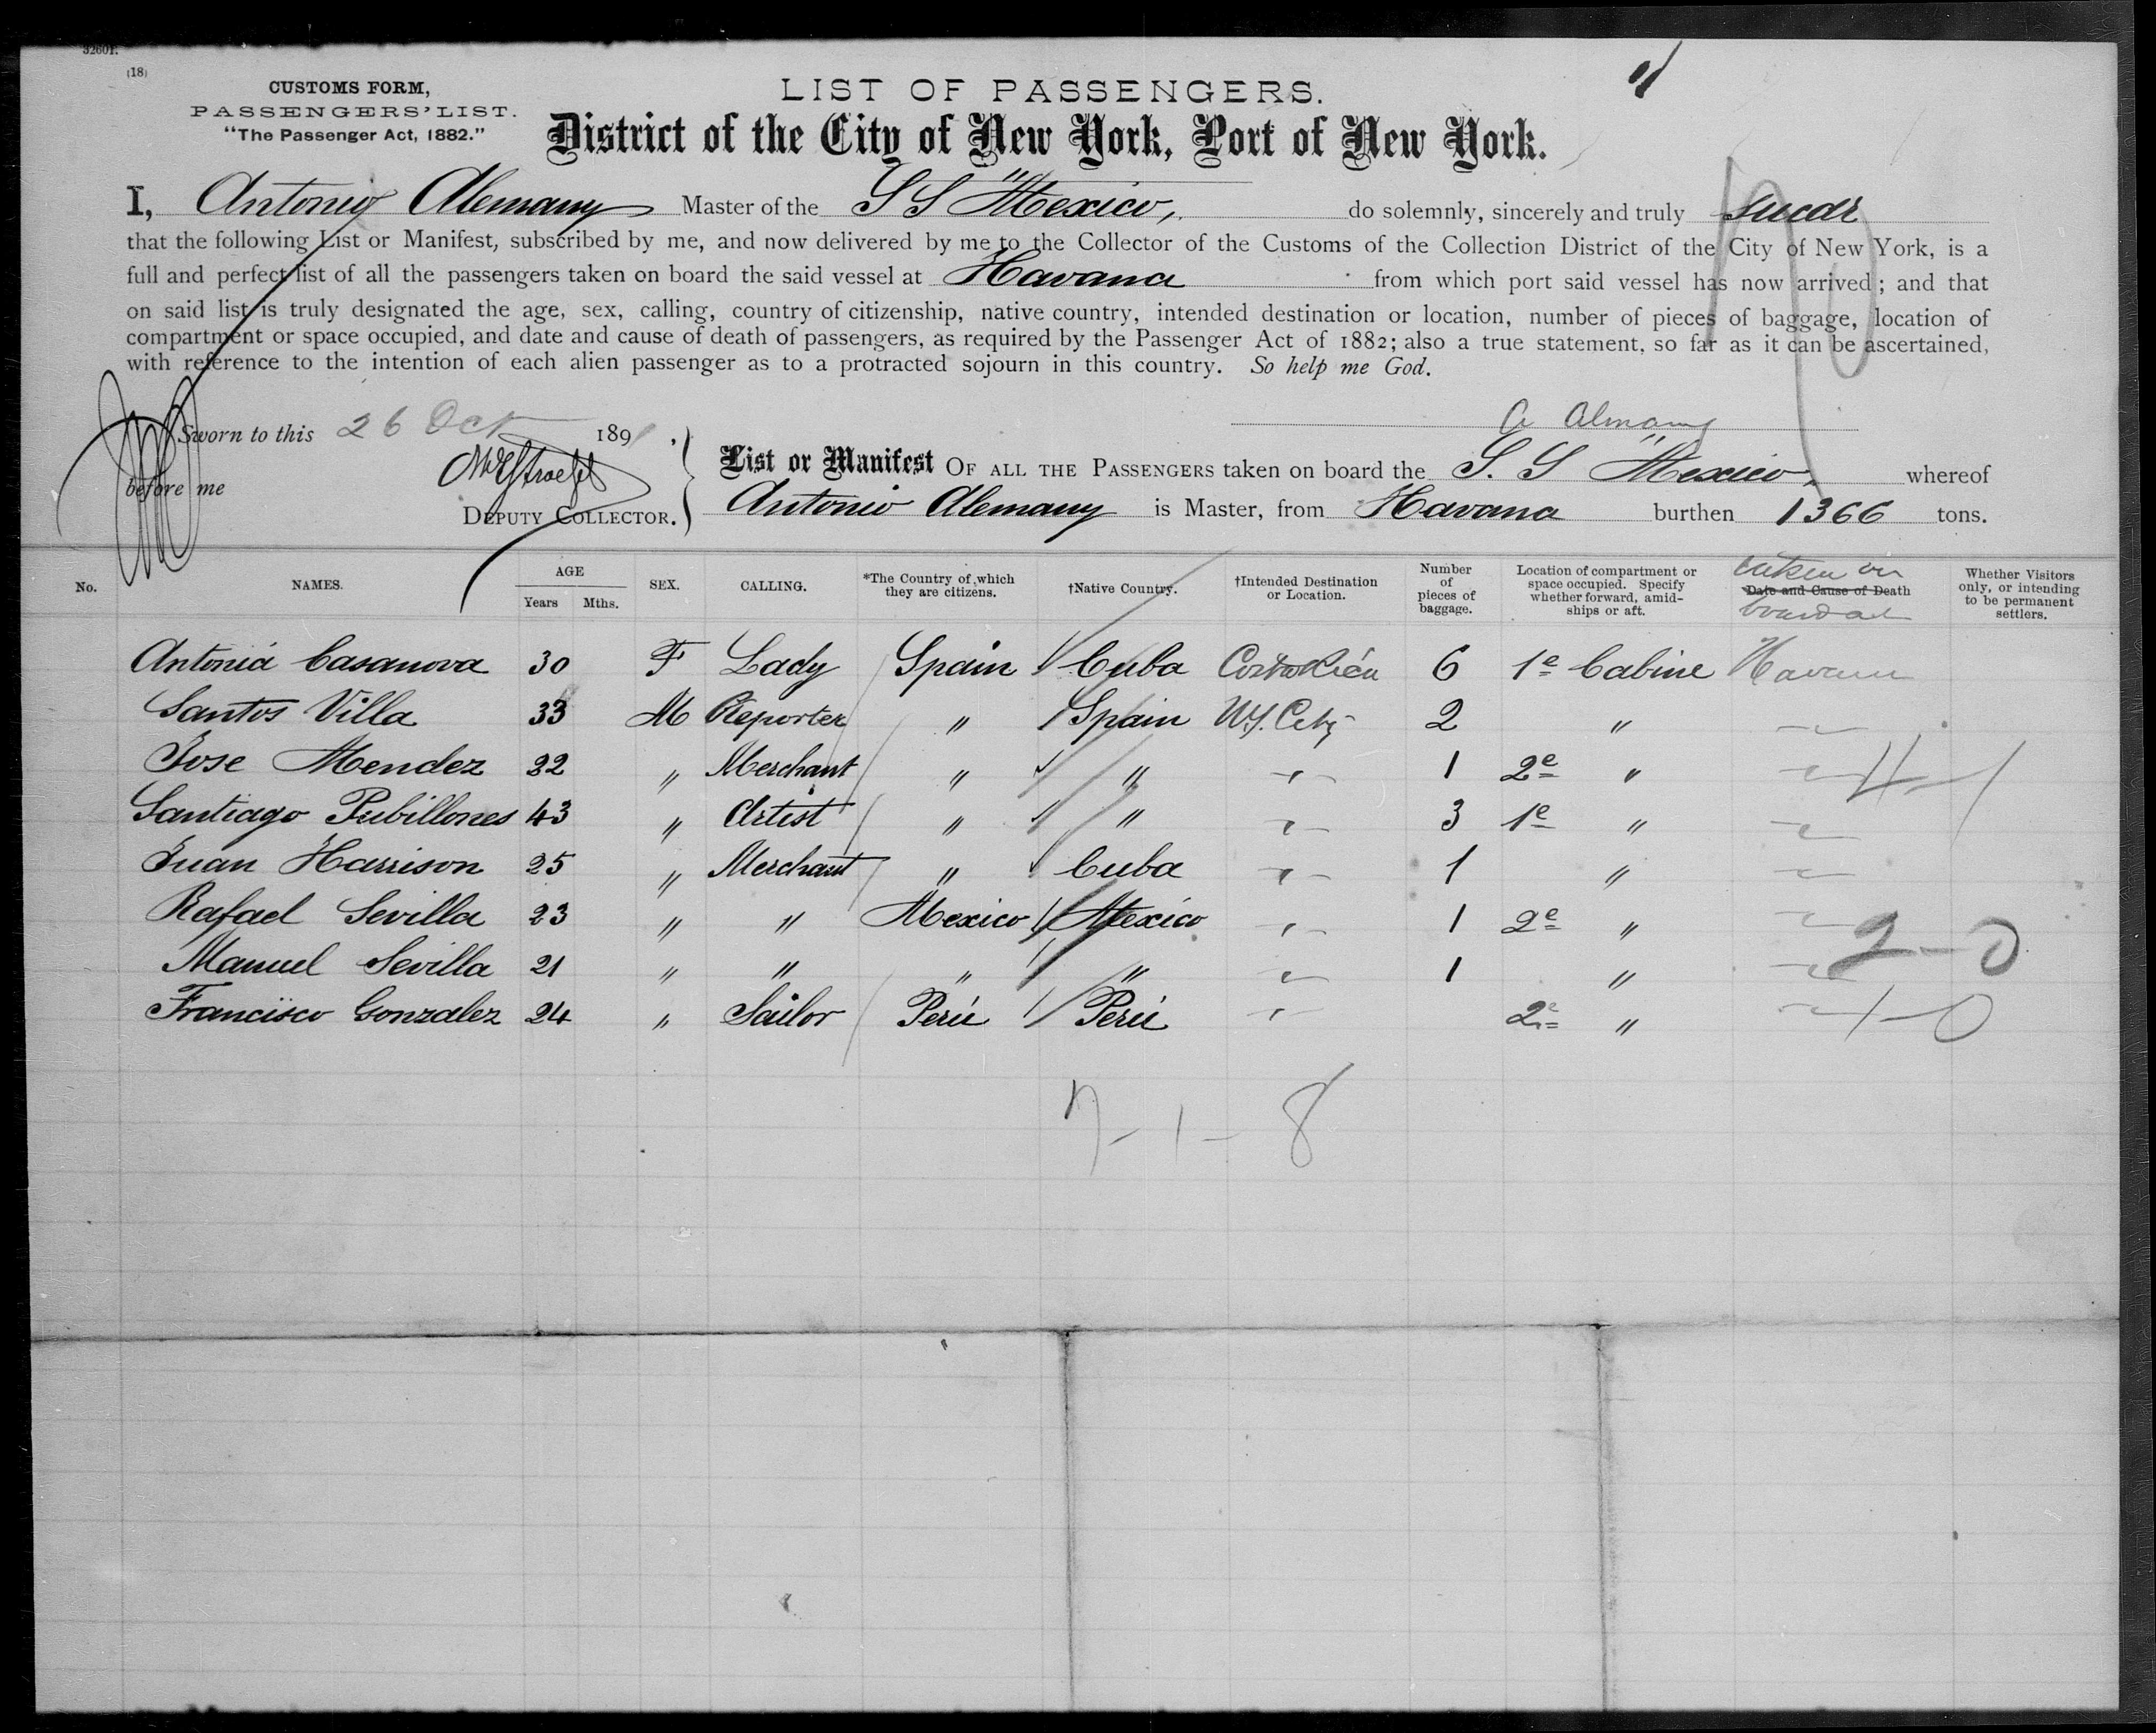 32601.
(18)
CUSTOMS FORM,
PASSENGERS' LIST.
"The Passenger Act, 1882."
LIST OF PASSENGERS.
District of the City of New York, Port of New York.
I, Antonio Alemany Master of the SS "Mexico", do solemnly, sincerely and truly swear
that the following List or Manifest, subscribed by me, and now delivered by me to the Collector of the Customs of the Collection District of the City of New York, is a
full and perfect list of all the passengers taken on board the said vessel at Havana from which port said vessel has now arrived; and that
on said list is truly designated the age, sex, calling, country of citizenship, native country, intended destination or location, number of pieces of baggage, location of
compartment or space occupied, and date and cause of death of passengers, as required by the Passenger Act of 1882; also a true statement, so far as it can be ascertained,
with reference to the intention of each alien passenger as to a protracted sojourn in this country. So help me God.
A Alemany
Sworn to this 26 Oct 1891,
before me
DEPUTY COLLECTOR.
List or Manifest OF ALL THE PASSENGERS taken on board the S. S "Mexico", whereof
Antonio Alemany is Master, from Havana burthen 1366 tons.
No. NAMES. AGE Years Mths. SEX. CALLING. *The Country of which they are citizens. †Native Country. †Intended Destination or Location. Number of pieces of baggage. Location of compartment or space occupied. Specify whether forward, amidships or aft. Date and Cause of Death taken on board at Whether Visitors only, or intending to be permanent settlers.
Antonia Casanova 30 F Lady Spain Cuba 6 1e Cabine Havana
Santos Villa 33 M Reporter " Spain N.Y. City 2 "
Jose Mendez 22 " Merchant " " 1 2e " 4-1
Santiago Pubillones 43 " Artist " " 3 1e "
Juan Harrison 25 " Merchant " Cuba 1 "
Rafael Sevilla 23 " " Mexico Mexico 1 2e "
Manuel Sevilla 21 " " " " 1 " 2-0
Francisco Gonzalez 24 " Sailor Perú Perú 2e " 1-0
7-1-8